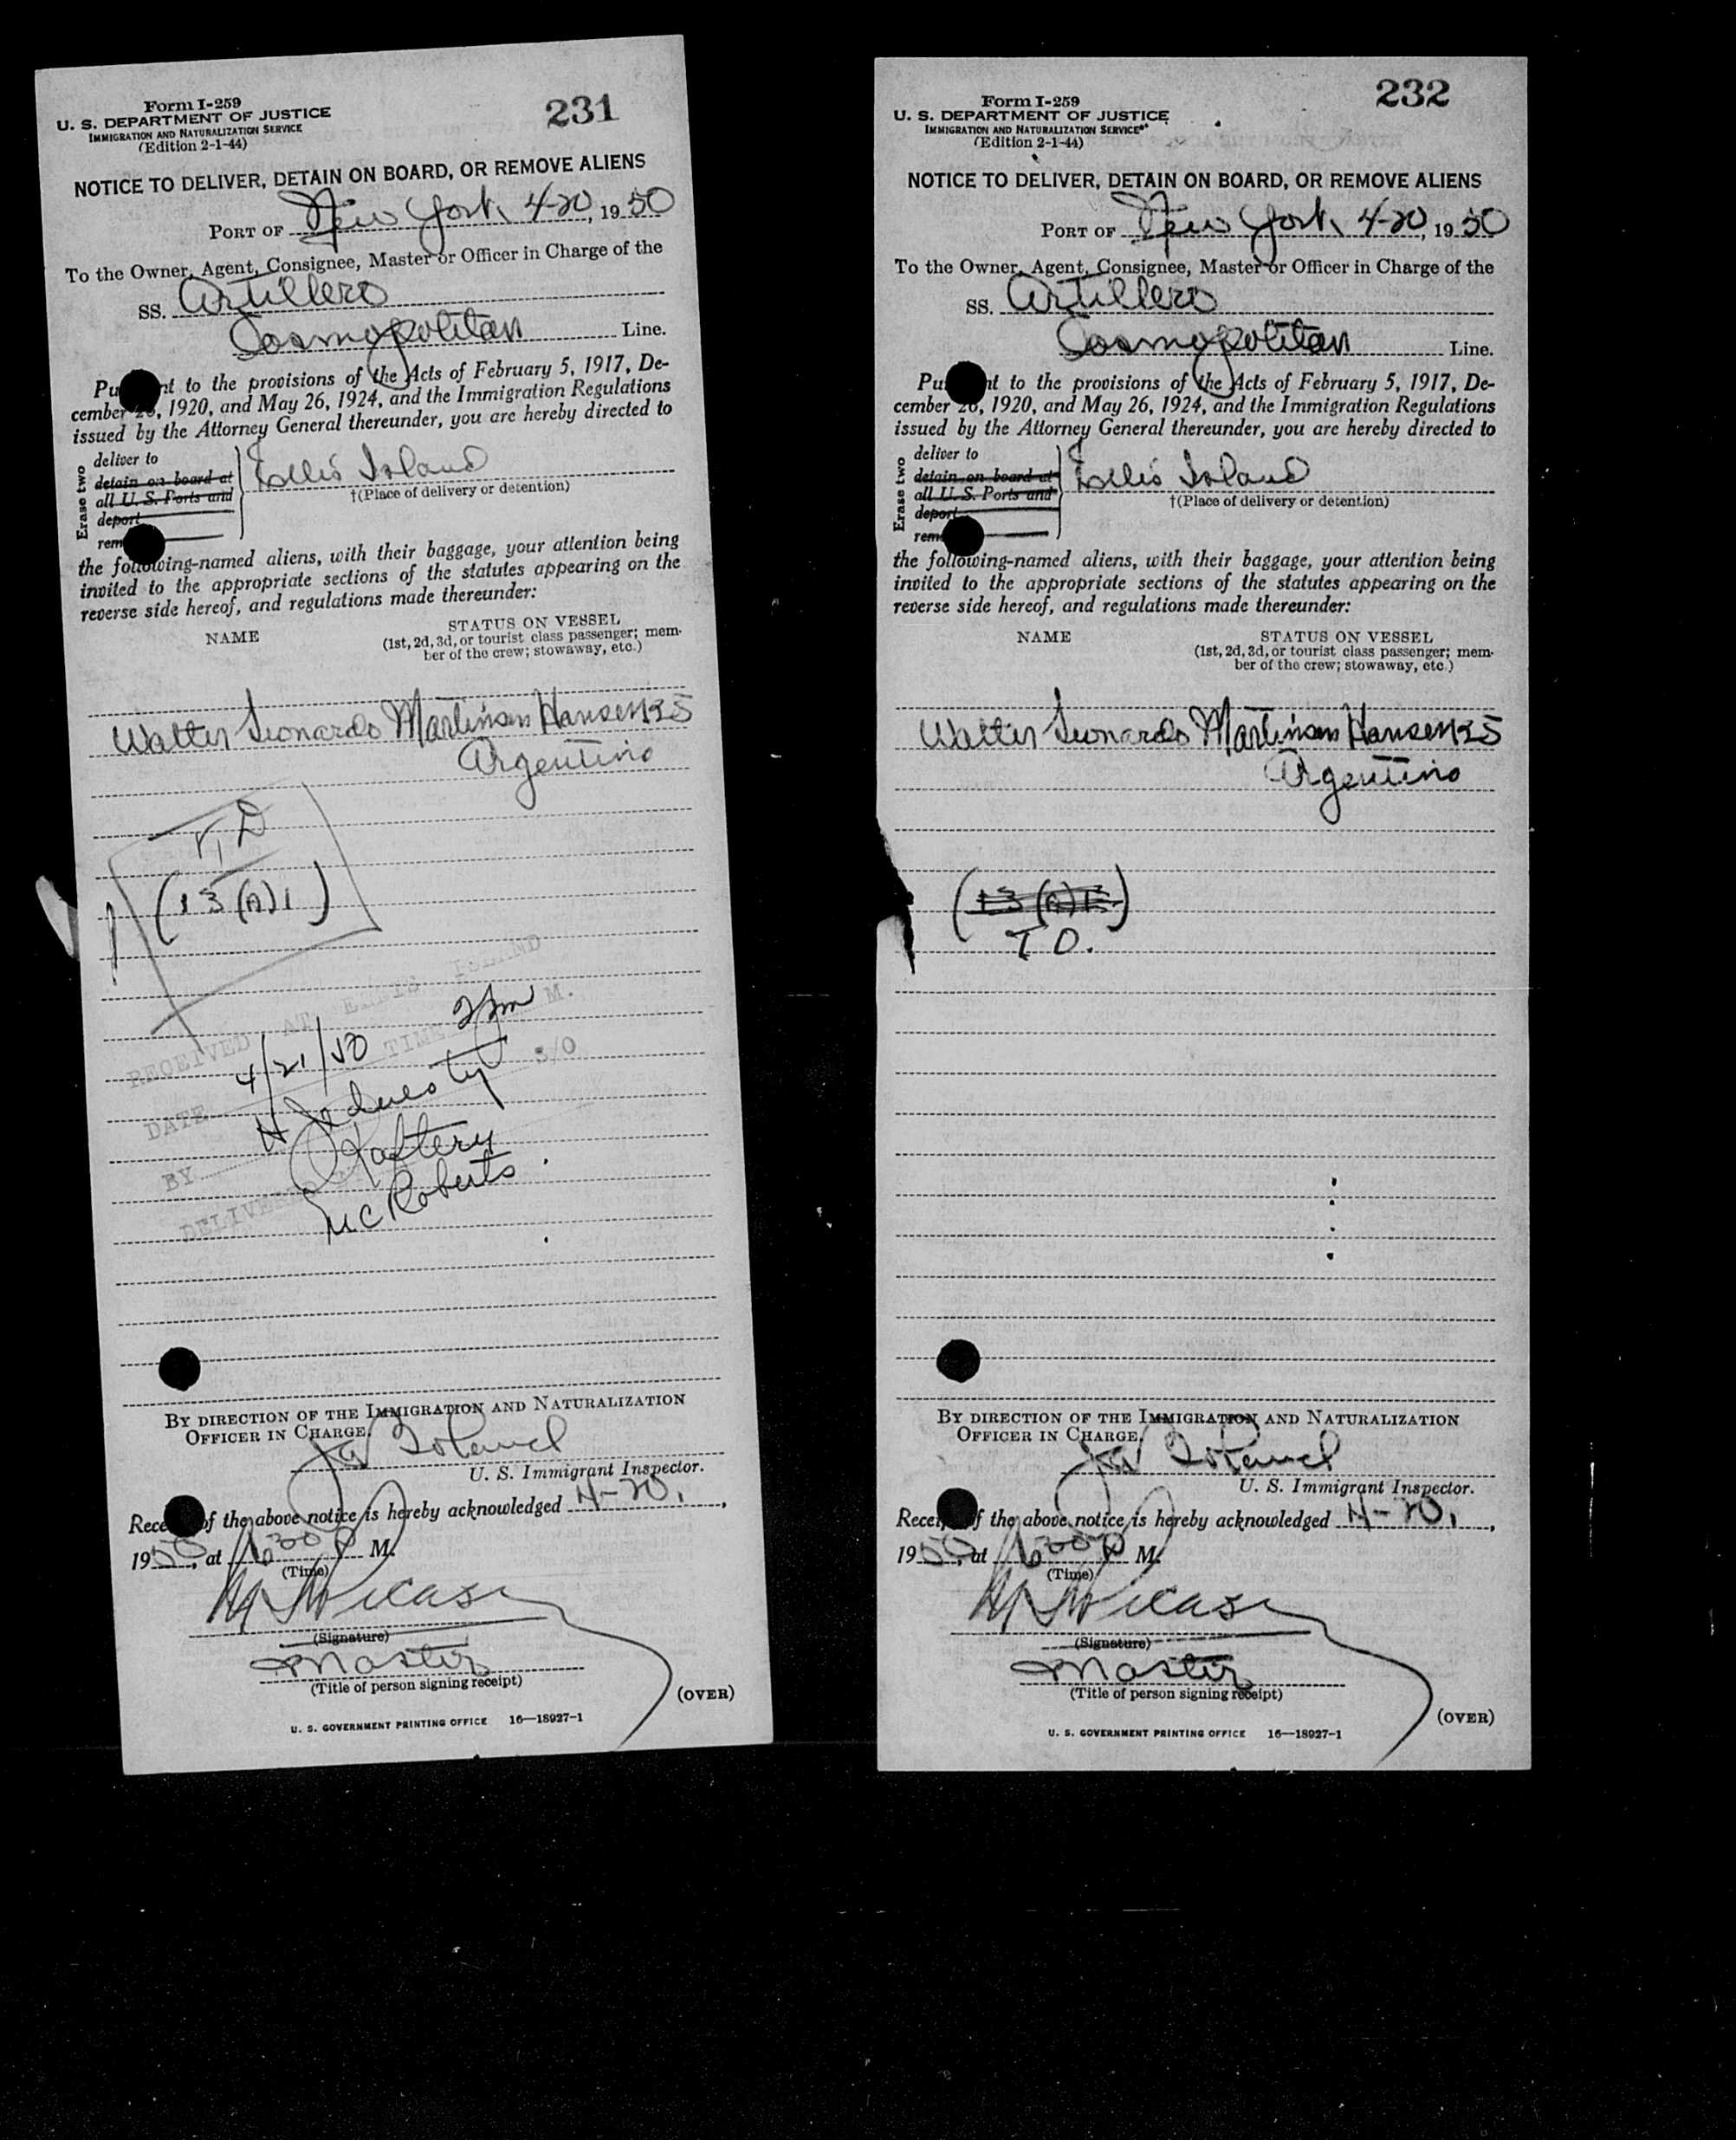 Form I-259
U. S. DEPARTMENT OF JUSTICE
IMMIGRATION AND NATURALIZATION SERVICE
(Edition 2-1-44)
231
NOTICE TO DELIVER, DETAIN ON BOARD, OR REMOVE ALIENS
PORT OF New York 4-20, 1950
To the Owner, Agent, Consignee, Master or Officer in Charge of the
SS. Artillero
Cosmopolitan Line.
Pu nt to the provisions of the Acts of February 5, 1917, De-
cember 26, 1920, and May 26, 1924, and the Immigration Regulations
issued by the Attorney General thereunder, you are hereby directed to
Erase two
deliver to
detain on board at
all U. S. Ports and
deport
rem
Ellis Island
†(Place of delivery or detention)
the following-named aliens, with their baggage, your attention being
invited to the appropriate sections of the statutes appearing on the
reverse side hereof, and regulations made thereunder:
NAME
STATUS ON VESSEL
(1st, 2d, 3d, or tourist class passenger; mem-
ber of the crew; stowaway, etc.)
Walter Leonardo Martinson Hansen 35
Argentino
T D
(13 (A) 1)
RECEIVED AT ELLIS ISLAND
DATE 4/21/50 TIME M.
BY S/O
DELIVERED
Raftery
McRoberts
BY DIRECTION OF THE IMMIGRATION AND NATURALIZATION
OFFICER IN CHARGE.
U. S. Immigrant Inspector.
Rece of the above notice is hereby acknowledged 4-20,
1950, at 630 P M.
(Time)
(Signature)
Master
(Title of person signing receipt)
(OVER)
U. S. GOVERNMENT PRINTING OFFICE 16—18927-1
Form I-259
U. S. DEPARTMENT OF JUSTICE
IMMIGRATION AND NATURALIZATION SERVICE
(Edition 2-1-44)
232
NOTICE TO DELIVER, DETAIN ON BOARD, OR REMOVE ALIENS
PORT OF New York 4-20, 1950
To the Owner, Agent, Consignee, Master or Officer in Charge of the
SS. Artillero
Cosmopolitan Line.
Pu nt to the provisions of the Acts of February 5, 1917, De-
cember 26, 1920, and May 26, 1924, and the Immigration Regulations
issued by the Attorney General thereunder, you are hereby directed to
Erase two
deliver to
detain on board at
all U. S. Ports and
deport
rem
Ellis Island
†(Place of delivery or detention)
the following-named aliens, with their baggage, your attention being
invited to the appropriate sections of the statutes appearing on the
reverse side hereof, and regulations made thereunder:
NAME
STATUS ON VESSEL
(1st, 2d, 3d, or tourist class passenger; mem-
ber of the crew; stowaway, etc.)
Walter Leonardo Martinson Hansen 35
Argentino
(13 (A) 1)
T D.
BY DIRECTION OF THE IMMIGRATION AND NATURALIZATION
OFFICER IN CHARGE.
U. S. Immigrant Inspector.
Recei f the above notice is hereby acknowledged 4-20,
1950, at 630 P M.
(Time)
(Signature)
Master
(Title of person signing receipt)
(OVER)
U. S. GOVERNMENT PRINTING OFFICE 16—18927-1